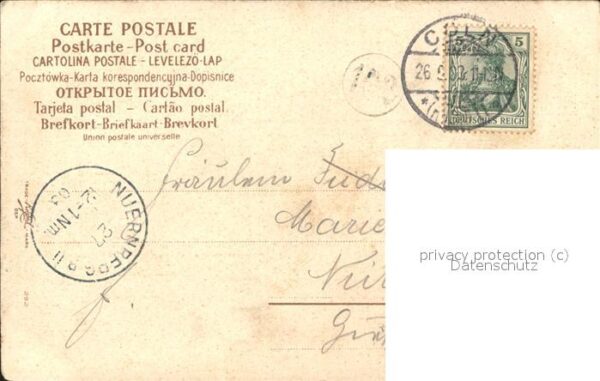 CARTE POSTALE
Postkarte - Post card
CARTOLINA POSTALE - LEVELEZO-LAP
Pocztówka-Karta korespondencyjna-Dopisnice
ОТКРЫТОЕ ПИСЬМО.
Tarjeta postal - Cartão postal.
Brefkort-Briefkaart-Brevkort
Union postale universelle
5
DEUTSCHES REICH
CÖLN
26.9.
NUERNBERG
27
Fräulein
Marie
privacy protection (c)
Datenschutz
292